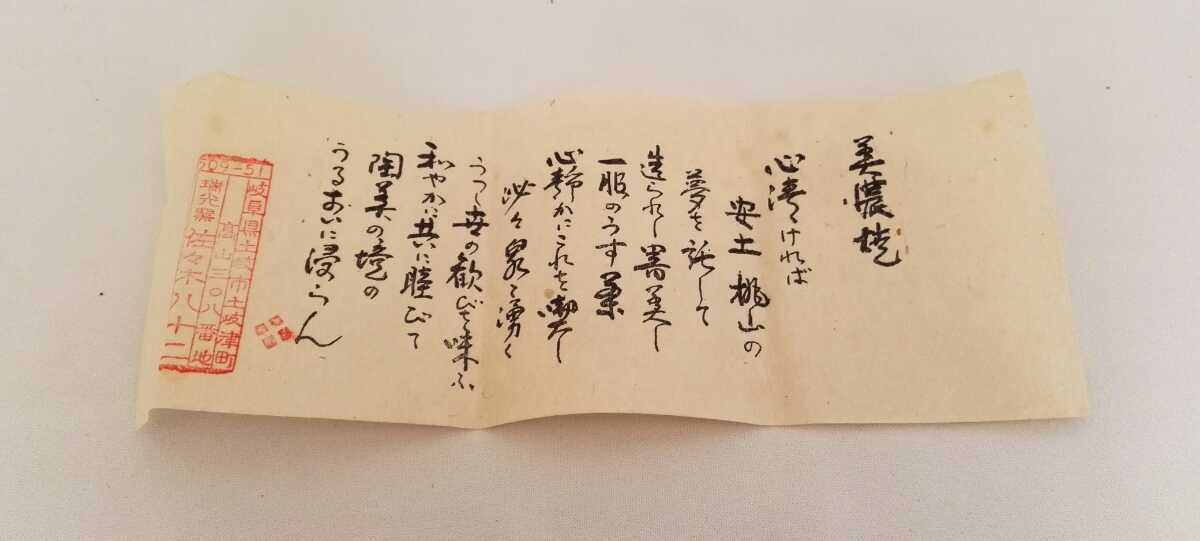 美濃焼
心清ければ
安土桃山の
夢を託して
造られし器美し
一服のうす茶
心静かにこれを喫し
沙々泉と湧く
うつし世の歓びを味ふ
和やかに共に睦びて
陶美の境の
うるおいに浸らん
509-51
岐阜県土岐市土岐津町
高山三〇八番地
瑞光窯 佐々木八十二